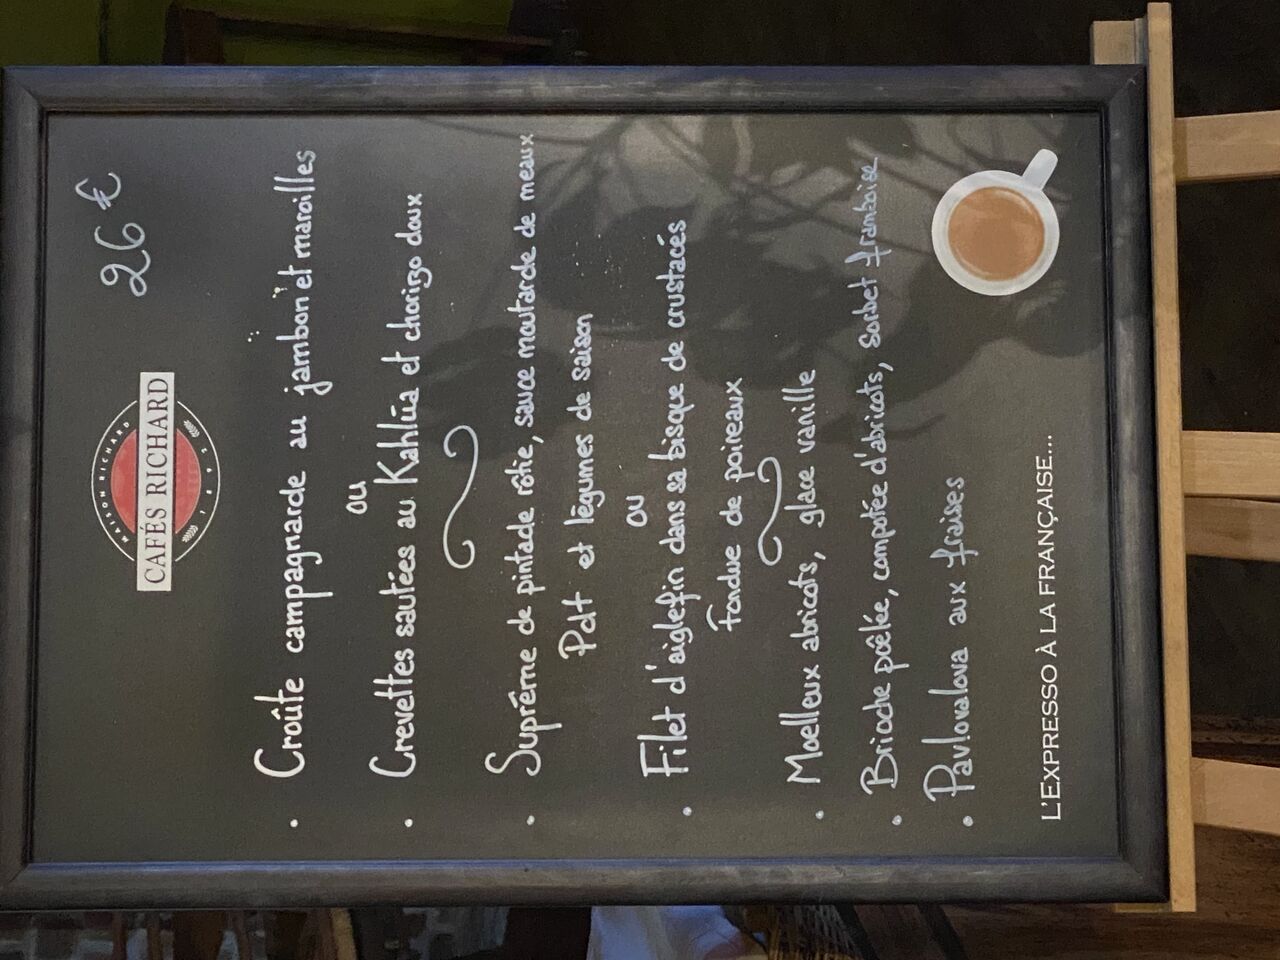 26 €
MAISON RICHARD
CAFÉS RICHARD
1892
• Croûte campagnarde au jambon et maroilles
ou
• Crevettes sautées au Kahlúa et chorizo doux
• Suprême de pintade rôtie, sauce moutarde de meaux
Pdt et légumes de saison
ou
• Filet d'aiglefin dans sa bisque de crustacés
fondue de poireaux
• Moelleux abricots, glace vanille
• Brioche poêlée, compotée d'abricots, sorbet framboise
• Pavlovalova aux fraises
L'EXPRESSO À LA FRANÇAISE...